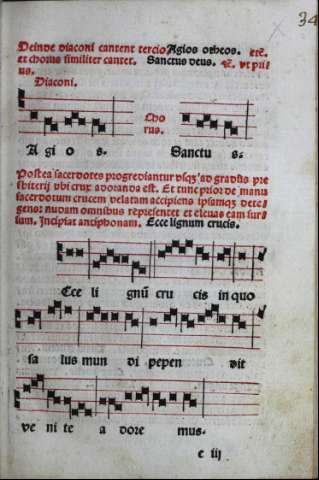 34
Deinde diaconi cantent tercio Agios otheos. etc̄.
et chorus similiter cantet. Sanctus deus. etc̄. vt pri
us.
Diaconi.
Cho
rus.
A gi o s. Sanctu s.
Postea sacerdotes progrediantur vsq3 ad gradus pre
sbiterij vbi crux adoranda est. Et tunc prior de manu
sacerdotum crucem velatam accipiens ipsamq3 dete
gens: nudam omnibus representet et eleuas eam sur
sum. Incipiat antiphonam. Ecce lignum crucis.
Ecce li gnū cru cis in quo
sa lus mun di pepen dit
ve ni te a dore mus.
e iij